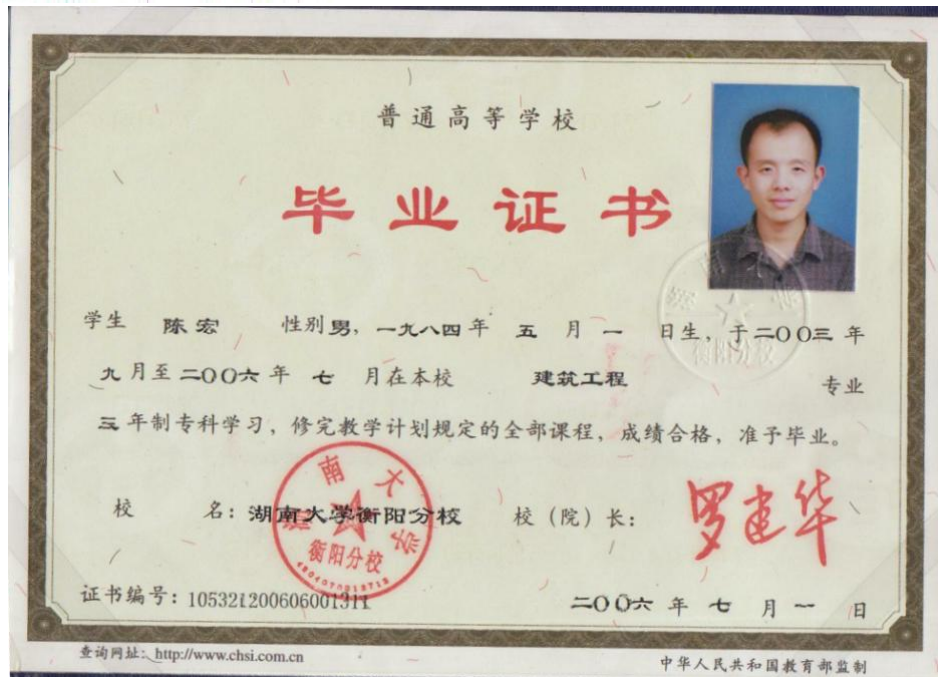 普通高等学校
毕业证书
学生 陈宏 性别 男, 一九八四 年 五 月 一 日生, 于 二00三 年
九 月至 二00六 年 七 月在本校 建筑工程 专业
三 年制专科学习, 修完教学计划规定的全部课程, 成绩合格, 准予毕业。
校 名: 湖南大学衡阳分校 校 (院) 长: 罗建华
湖南大学
衡阳分校
证书编号: 105321200606001311 二00六 年 七 月 一 日
查询网址: http://www.chsi.com.cn 中华人民共和国教育部监制